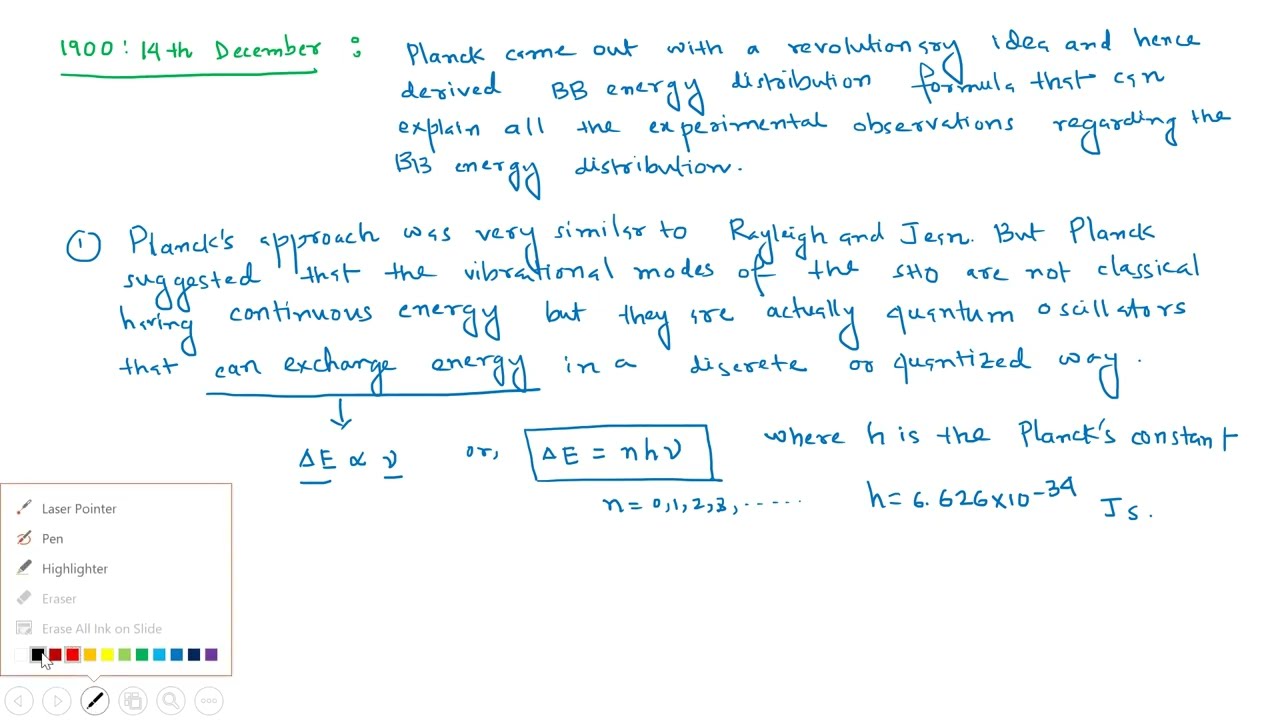 1900: 14th December : Planck came out with a revolutionary idea and hence
derived BB energy distribution formula that can
explain all the experimental observations regarding the
BB energy distribution.
① Planck's approach was very similar to Rayleigh and Jean. But Planck
suggested that the vibrational modes of the SHO are not classical
having continuous energy but they are actually quantum oscillators
that can exchange energy in a discrete or quantized way.
↓
ΔE ∝ ν or, ΔE = nhν where h is the Planck's constant
n = 0,1,2,3,...... h = 6.626×10⁻³⁴ Js.
Laser Pointer
Pen
Highlighter
Eraser
Erase All Ink on Slide